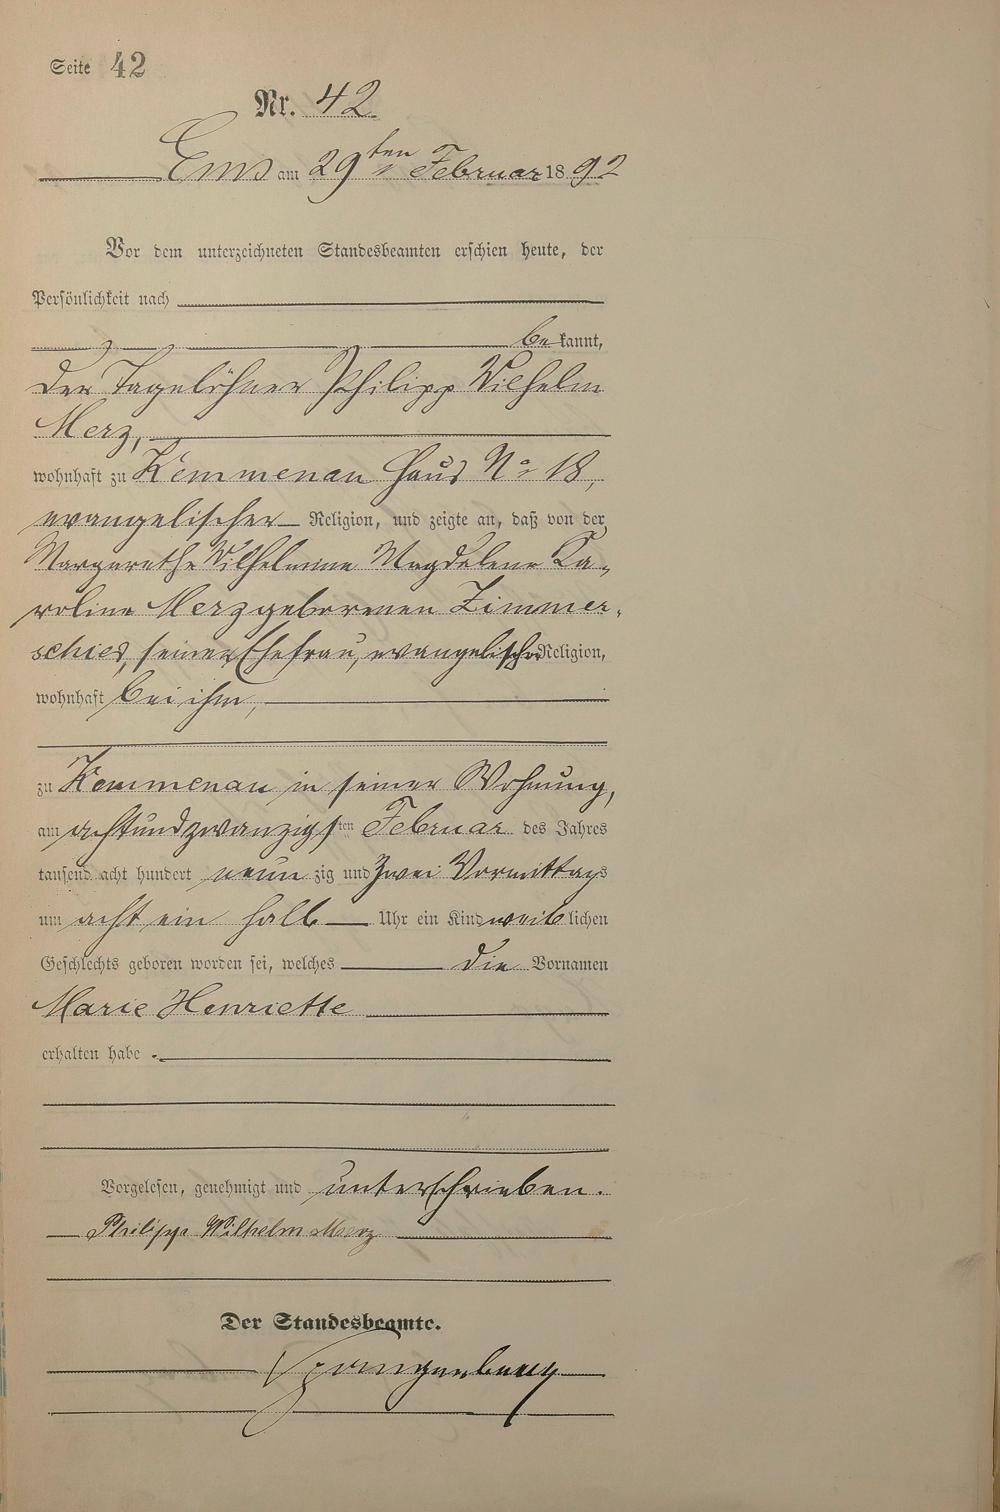 Seite 42
Nr. 42
Ems am 29ten Februar 1892
Vor dem unterzeichneten Standesbeamten erschien heute, der
Persönlichkeit nach
bekannt,
der Tagelöhner Philipp Wilhelm
Merz,
wohnhaft zu Kemmenau Haus No 18,
evangelischer Religion, und zeigte an, daß von der
Margarethe Wilhelmine Magdalene Ka-
roline Merz geborenen Zimmer-
schied, seiner Ehefrau, evangelischer Religion,
wohnhaft bei ihm,
zu Kemmenau in seiner Wohnung,
am achtundzwanzigsten Februar des Jahres
tausend acht hundert neunzig und zwei Vormittags
um acht ein halb Uhr ein Kind weiblichen
Geschlechts geboren worden sei, welches die Vornamen
Marie Henriette
erhalten habe.
Vorgelesen, genehmigt und unterschrieben.
Philipp Wilhelm Merz
Der Standesbeamte.
Spangenberg